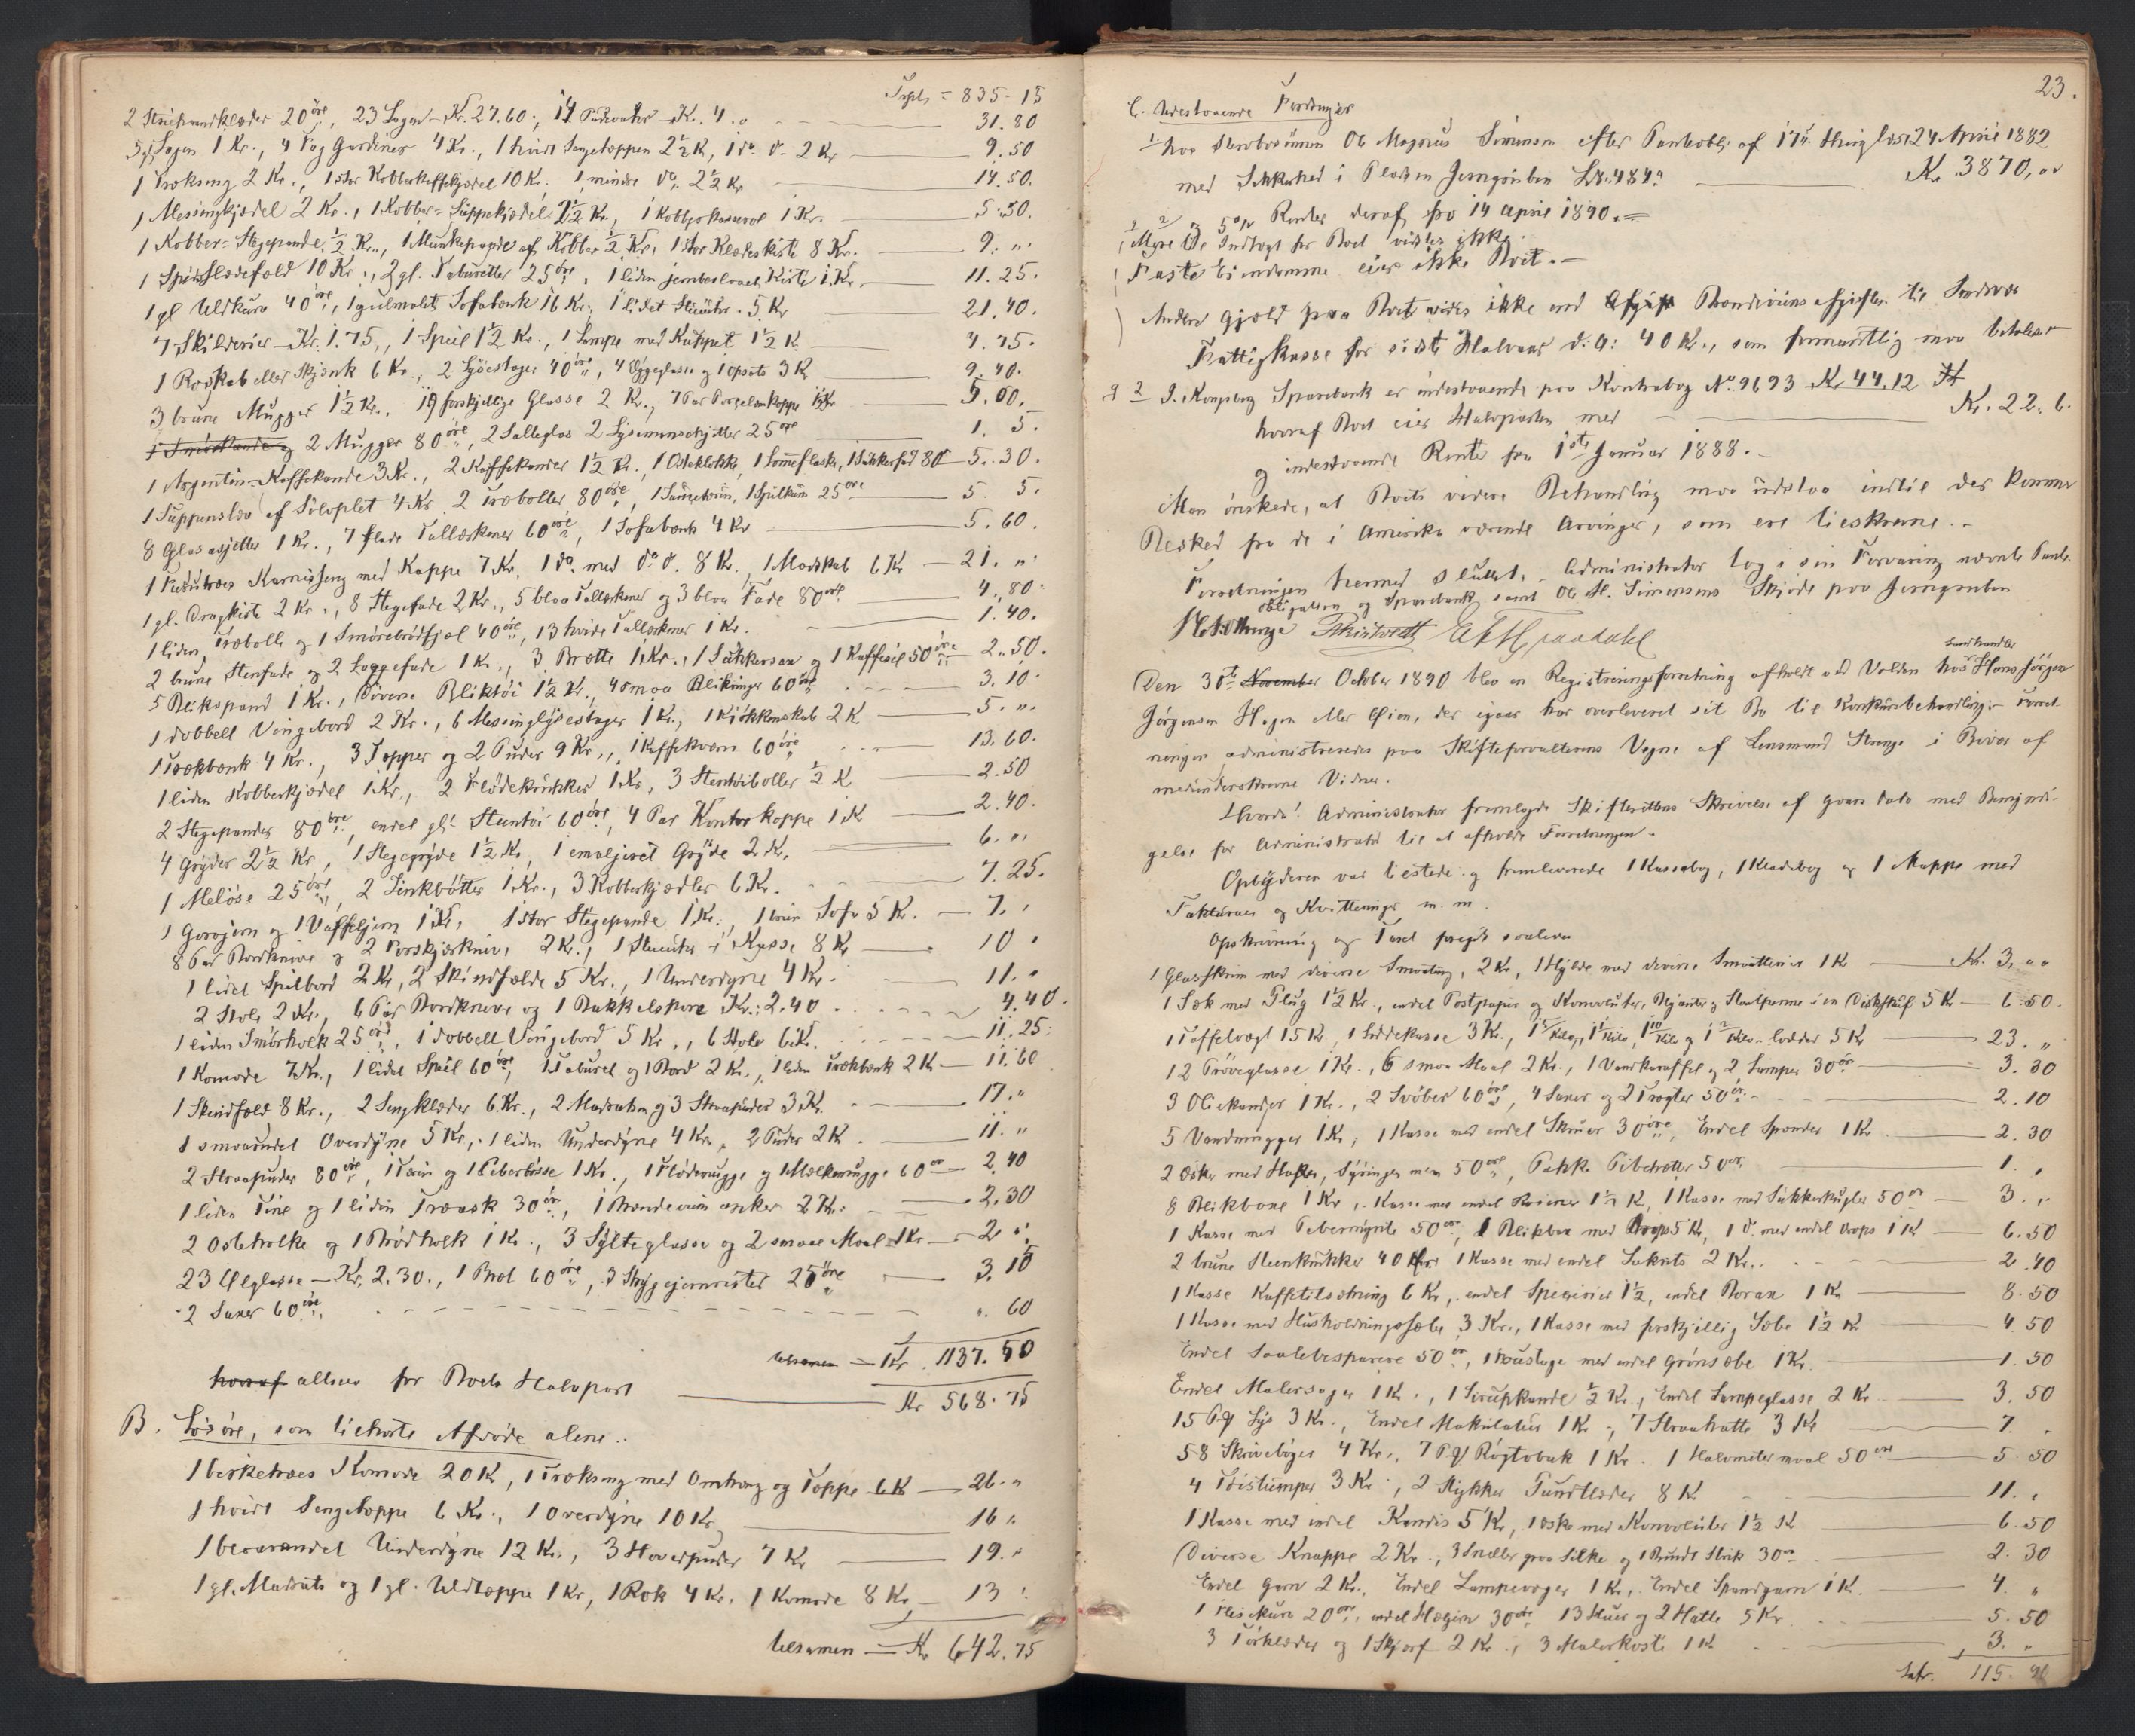 Trspt = 835-15
2 Skuehaandklæder 20 öre, 23 Lagen - Kr. 27.60., 14 Pudevahr - Kr. 4.. 31.80
Lagen 1 Kr., 4 Fag Gardiner 4 Kr., 1 hvidt Sengeteppen 2½ K, 1 do. d. 2 Kr 9.50
1 Træksæng 2 Kr., 1 stor Kobberkaffekjedel 10 Kr. 1 mindre do. 2½ Kr 14.50.
1 Messingkjedel 2 Kr., 1 Kobber-Suppekjedel 2½ Kr., 1 Kobberkasserol 1 Kr. 5.50.
1 Kobber-Stegepande ½ Kr., 1 Munkepande af Kobber ½ Kr., 1 stor Klædeskiste 8 Kr. 9. "
1 Slædefæld 10 Kr., 2 gl. Taburetter 25 öre, 1 liden jernbeslaaet Kiste 1 Kr. 11.25.
1 gl Uldkurv 40 öre, 1 gulmalt Sofabænk 16 Kr., 1 lidet Stueuhr. 5 Kr 21.40.
7 Skilderier - Kr. 1.75., 1 Speil 1½ Kr., 1 Lampe med Kuppel 1½ K. 4.75.
1 Roskab eller Skjænk 6 Kr., 2 Lysestager 40 öre, 4 Æggeglasse og 1 Opsats 3 K 9.40.
3 brune Mugger 1½ Kr., 19 forskjellige Glasse 2 Kr., 7 Par Porcelænkoppe 1½ Kr 5.00.
2 Mugger 80 öre, 2 Salteglas 2 Lysemanschjetter 25 öre 1. 5.
1 Argentin-Kaffekande 3 Kr., 2 Kaffekander 1½ Kr., 1 Osteklokke, 1 Lommeflaske, 1 Sukkerfad 80 5.30.
1 Suppeuslev af Sölvplet 4 Kr 2 Træboller 80 öre, 1 Spilkum 25 öre 5. 5.
8 Glasasjetter 1 Kr., 7 flade Tallerkner 60 öre, 1 Sofabænk 4 Kr 5.60.
1 Furutræes Karnisseng med Kappe 7 Kr, 1 do. med do. d. 8 Kr., 1 Madskab 6 Kr 21. "
1 gl. Dragkiste 2 Kr., 8 Stegefade 2 Kr., 5 blaa Tallerkener og 3 blaa Fade 80 öre 4.80.
1 liden Træbolle og 1 Smörebrödfjæl 40 öre, 13 hvide Tallerkner 1 Kr. 1.40.
2 brune Stenfade og 2 Læggefade 1 K., 3 Brætte 1 Kr., 1 Sukkersax og 1 Kaffesil 50 öre 2.50.
5 Blikspand 1 Kr., Diverse Bliktöi 1½ Kr., 4 smaa Blikringe 60 öre 3.10.
1 dobbelt Vingebord 2 Kr., 6 Messinglysestager 1 Kr., 1 Kjökkenskab 2 K 5. "
1 Trækbænk 4 Kr., 3 Tepper og 2 Puder 9 Kr., 1 Kaffekværn 60 öre 13.60.
1 liden Kobberkjedel 1 Kr., 2 Flödekrukker 1 Kr, 3 Stentöiboller ½ K 2.50
2 Stegepander 80 öre, endel gl. Stentöi 60 öre, 4 Par Kontorkoppe 1 K 2.40.
4 Gryder 2½ Kr, 1 Stegegryde 1½ Kr, 1 emaljeret Gryde 2 K. 6. "
1 Melöse 25 öre, 2 Sinkbötter 1 Kr., 3 Kobberkjedler 6 Kr. 7.25.
1 Gorojern og 1 Vaffeljern 1 Kr, 1 stor Stegepande 1 Kr., 1 brun Sofa 5 K. 7. "
8 Par Bordknive og 2 Forskjærkniv, 2 Kr., 1 Stueuhr i Kasse 8 Kr 10 "
1 lidet Spilbord 2 Kr, 2 Skindfælde 5 Kr., 1 Underdyne 4 Kr. 11. "
2 Stole 2 Kr., 6 Par Bordknive og 1 Bakkelspore Kr. 2.40 4.40.
1 liden Smörholk 25 öre, 1 dobbelt Vingebord 5 Kr., 6 Stole 6 K. 11.25
1 Komode 7 Kr., 1 lidet Speil 60 öre, 1 Taburet og 1 Bord 2 Kr., 1 liden Trækbænk 2 K. 11.60
1 Skindfæld 8 Kr., 2 Sengklæder 6 Kr., 2 Madratser og 3 Straapuder 3 Kr. 17. "
1 smaarudet Overdyne 5 Kr., 1 liden Underdyne 4 Kr. 2 Puder 2 K. 11. "
2 Straapuder 80 öre, 1 Terin og 1 Peberbösse 1 Kr., 1 Flödemugge og 1 Melkemugge 60 ör 2.40
1 liden Tine og 1 liden Træask 30 ör, 1 Brændeviinsanker 2 Kr. 2.30
2 Osteholke og 1 Brödholk 1 K., 3 Sylteglasse og 2 smaae Maal 1 Kr 2 "
23 Ølglasse - Kr. 2.30., 1 Bræt 60 öre, 3 Strygejernrister 25 öre 3.15
2 Saxer 60 öre. ". 60
tilsammen - Kr. 1137.50
hvoraf altsaa for Boets Halvpart Kr 568.75
B. Lösöre, som tilhörte Afdöde alene..
1 birketræes Komode 20 K, 1 Træksæng med Omhæng og Teppe 6 K 26. "
1 hvidt Sengeteppe 6 Kr., 1 Overdyne 10 Kr 16 "
1 blaarandet Underdyne 12 Kr., 3 Hovedpuder 7 Kr 19. "
1 gl. Madrats og 1 gl. Uldteppe 1 Kr, 1 Rok 4 Kr, 1 Komode 8 Kr 13 "
tilsammen - Kr 642.75
23.
C. Udestaaende Fordringer
1 hos Sterbosönnen Ole Magnus Simensen efter Pantobl. af 17 thinglæst 24 April 1882
med Sikkerhed i Pladsen Jerngruben L.N. 484 Kr. 3870, "
2 5% Renter deraf fra 14 April 1890.
Mere til Indtægt for Boet vides ikke.
Faste Eiendomme eier ikke Boet.
Anden Gjæld paa Boet vides ikke end Brændeviinsafgiften til Sandsvær
Fattigkasse for sidste Halvaar d.a: 40 Kr., som formentlig maa betales
2 I Kongsberg Sparebank er indestaaende paa Kontrabog No. 9693 Kr 44.12
hvoraf Boet eier Halvparten med Kr. 22. 6.
og indestaaende Renter fra 1ste Januar 1888.
Man önskede, at Boets videre Behandling maa udstaa indtil der kommer
Besked fra de i Amerika værende Arvinger, som ere tilskrevne.
Forretningen hermed sluttet. Administrator tog i sin Forvaring nævnte Pante-
obligation og Sparebank, samt Ole H. Simensens Skjöde paa Jerngruben
Den 30te November October 1890 blev en Registreringsforretning afholdt ved Volden hos Landhandler Hans Jörgen
Jörgensen Hagen eller Öien, der igaar har overleveret sit Bo til Konkursbehandling. Forret-
ningen administreredes paa Skifteforvalterens Vegne af Lensmand Strange i Nævær af
medunderskrevne Vidner.
Hvorda! Administrator fremlagde Skifterettens Skrivelse af gaars Dato med Bemyndi-
gelse for Administrator til at afholde Forretningen.
Opbyderen var tilstede og fremleverede 1 Kassabog, 1 Kladebog og 1 Mappe med
Fakturaer og Kvitteringer m.m.
Opskrivning og Taxt foregik saaledes
1 Glasskrin med diverse Smaating, 2 Kr, 1 Hylde med diverse Smaatterier 1 K Kr. 3. "
1 Sæk med Flüg 1½ Kr., endel Postpapir og Konvoluter, Blyanter og Staalpenne i en Diskskuf 5 K 6.50.
1 Taffelvægt 15 K, 1 Loddekasse 3 Kr., lodder 5 K 23. "
12 Pröveglasse 1 Kr., 6 smaa Maal 2 Kr., 1 Vandkaraffel og 2 Lamper 30 ör 3.30
3 Oliekander 1 K., 2 Svöber 60 öre, 4 Saxer og 2 Tragter 50 ör. 2.10
5 Vandmugger 1 K, 1 Kasse med endel Skruer 30 öre, Endel Spænder 1 Kr 2.30
2 Æsker med Hager, Syringe m.m 50 öre, Pakke Pibehatter 50 ör 1. "
8 Blikboxe 1 Kr, 1 Kasse med endel Rosiner 1½ K, 1 Kasse med Sukkerkugler 50 ör 3. "
1 Kasse med Pebermynte 50 ör, 1 Blikbox med Drops 5 Kr, 1 d. med endel Drops 1 K 6.50
2 brune Stenkrukker 40 öre 1 Kasse med endel Lakrits 2 Kr. 2.40
1 Kasse Kaffetilsætning 6 Kr., endel Specerier 1½, endel Borax 1 K 8.50
1 Kasse med Husholdningssæbe 3 Kr., 1 Kasse med forskjellig Sæbe 1½ K 4.50
Endel Saalebesparere 50 ör, 1 Boustage med endel Grönsæbe 1 Kr. 1.50
Endel Malersager 1 K., 1 Sirupkande ½ K., Endel Lampeglasse 2 K 3.50
15 Pgr Lys 3 Kr., Endel Makulatur 1 Kr., 7 Straahatte 3 Kr 7. "
58 Skrivebøger 4 Kr., 7 Pgr Røgtobak 1 Kr. 1 Halvmetermaal 50 öre 5.50
4 Töistumper 3 Kr., 2 Stykker Pundtlæder 8 K 11. "
1 Kasse med endel Kandis 5 Kr, 1 Æske med Konvoluter 1½ K 6.50
Diverse Knappe 2 Kr., 3 Sneller graa Silke og 1 Bundt Strik 30 ör 2.30
Endel Garn 2 Kr., Endel Lampevæger 1 Kr., Endel Spundgarn 1 K. 4. "
endel Hægtin 30 öre 13 Huer og 2 Hatte 5 Kr 5.50
3 Törklæder og 1 Skjærf 2 Kr., 3 Malerkoste 1 K 3. "
Latr. 115.90